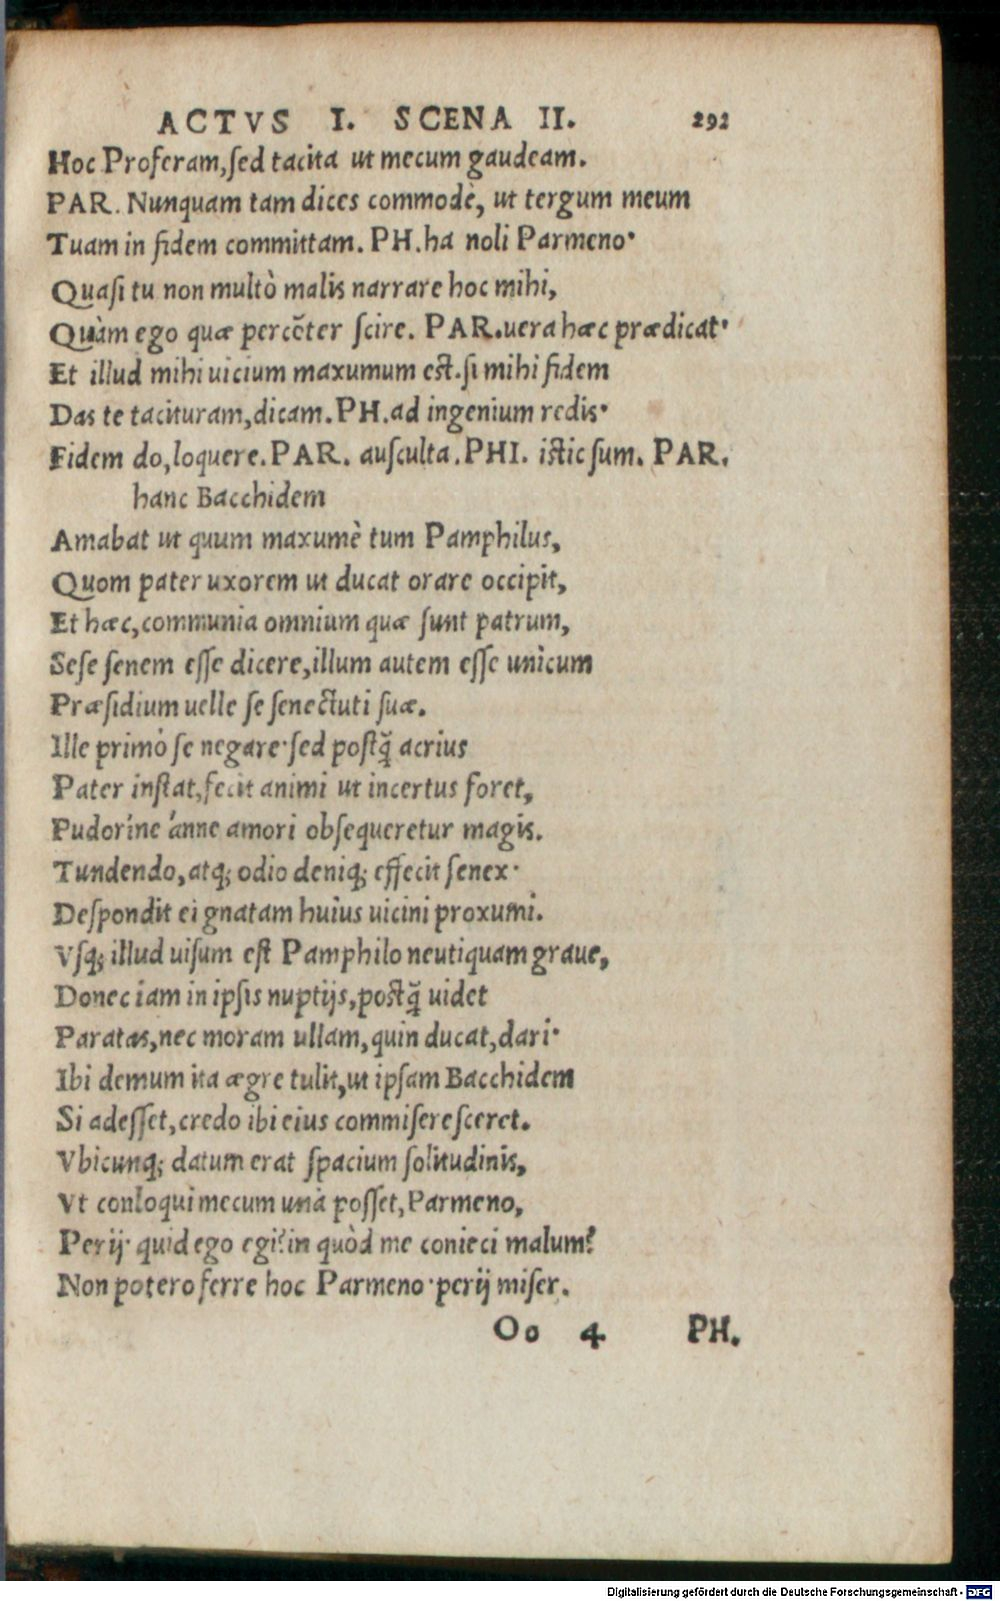 ACTVS I. SCENA II. 292
Hoc Proferam, sed tacita ut mecum gaudeam.
PAR. Nunquam tam dices commodè, ut tergum meum
Tuam in fidem committam. PH. ha noli Parmeno·
Quasi tu non multò malis narrare hoc mihi,
Quàm ego quæ percõter scire. PAR. uera hæc prædicat·
Et illud mihi uicium maxumum est. si mihi fidem
Das te tacituram, dicam. PH. ad ingenium redis·
Fidem do, loquere. PAR. ausculta. PHI. istic sum. PAR.
hanc Bacchidem
Amabat ut quum maxumè tum Pamphilus,
Quom pater uxorem ut ducat orare occipit,
Et hæc, communia omnium quæ sunt patrum,
Sese senem esse dicere, illum autem esse unicum
Præsidium uelle se senectuti suæ.
Ille primò se negare· sed postq̃ acrius
Pater instat, fecit animi ut incertus foret,
Pudoríne ánne amori obsequeretur magis.
Tundendo, atq; odio deniq; effecit senex·
Despondit ei gnatam huius uicini proxumi.
Vsq; illud uisum est Pamphilo neutiquam graue,
Donec iam in ipsis nuptijs, postq̃ uidet
Paratas, nec moram ullam, quin ducat, dari·
Ibi demum ita ægre tulit, ut ipsam Bacchidem
Si adesset, credo ibi eius commiseresceret.
Vbicunq; datum erat spacium solitudinis,
Vt conloqui mecum unà posset, Parmeno,
Perij· quid ego egi? in quòd me conieci malum?
Non potero ferre hoc Parmeno· perij miser.
Oo 4 PH.
Digitalisierung gefördert durch die Deutsche Forschungsgemeinschaft - DFG